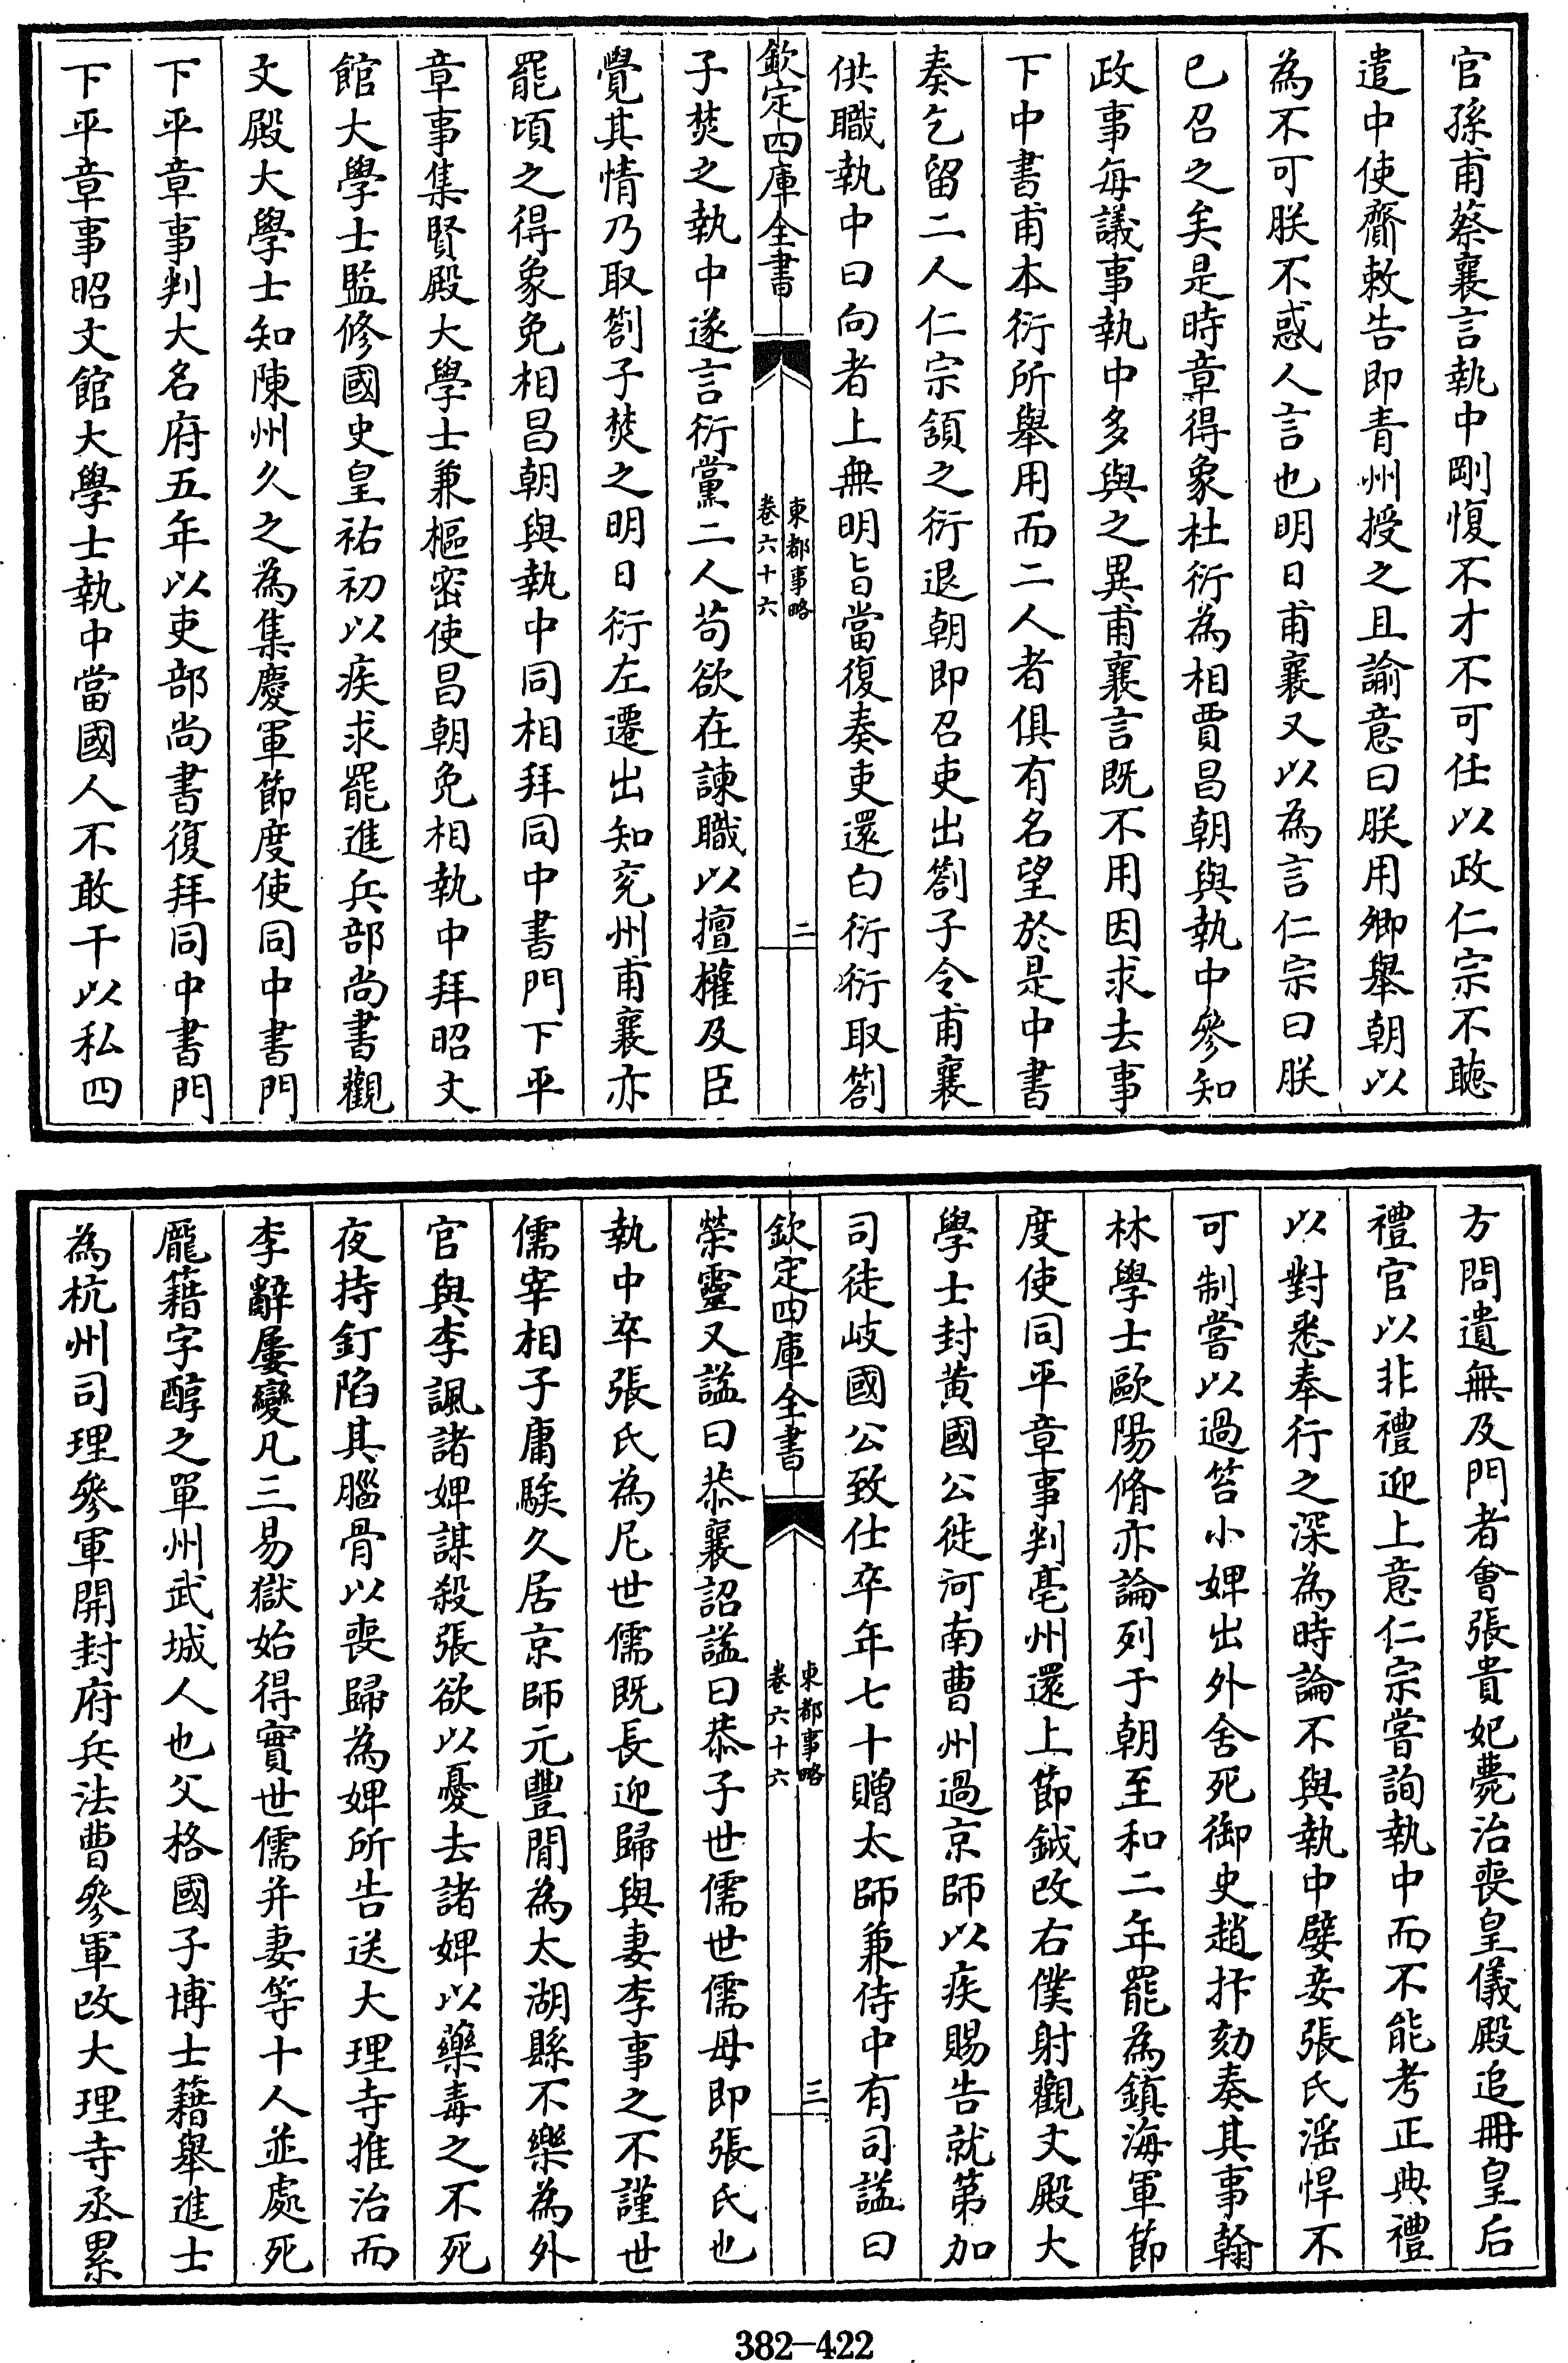 官孫甫蔡襄言執中剛愎不才不可任以政仁宗不聽
遣中使齎敕告即青州授之且諭意曰朕用卿舉朝以
為不可朕不惑人言也明日甫襄又以為言仁宗曰朕
已召之矣是時章得象杜衍為相賈昌朝與執中參知
政事每議事執中多與之異甫襄言既不用因求去事
下中書甫本衍所舉用而二人者俱有名望於是中書
奏乞留二人仁宗頷之衍退朝即召吏出劄子令甫襄
供職執中曰向者上無明旨當復奏吏還白衍衍取劄
欽定四庫全書
東都事略
卷六十六
二
子焚之執中遂言衍黨二人苟欲在諫職以擅權及臣
覺其情乃取劄子焚之明日衍左遷出知兖州甫襄亦
罷頃之得象免相昌朝與執中同相拜同中書門下平
章事集賢殿大學士兼樞密使昌朝免相執中拜昭文
館大學士監修國史皇祐初以疾求罷進兵部尚書觀
文殿大學士知陳州久之為集慶軍節度使同中書門
下平章事判大名府五年以吏部尚書復拜同中書門
下平章事昭文館大學士執中當國人不敢干以私四
方問遺無及門者會張貴妃薨治喪皇儀殿追冊皇后
禮官以非禮迎上意仁宗嘗詢執中而不能考正典禮
以對悉奉行之深為時論不與執中嬖妾張氏淫悍不
可制嘗以過笞小婢出外舍死御史趙抃劾奏其事翰
林學士歐陽脩亦論列于朝至和二年罷為鎮海軍節
度使同平章事判亳州還上節鉞改右僕射觀文殿大
學士封黄國公徙河南曹州過京師以疾賜告就第加
司徒岐國公致仕卒年七十贈太師兼侍中有司諡曰
欽定四庫全書
東都事略
卷六十六
三
榮靈又諡曰恭襄詔諡曰恭子世儒世儒母即張氏也
執中卒張氏為尼世儒既長迎歸與妻李事之不謹世
儒宰相子庸騃久居京師元豐間為太湖縣不樂為外
官與李諷諸婢謀殺張欲以憂去諸婢以藥毒之不死
夜持釘陷其腦骨以喪歸為婢所告送大理寺推治而
李辭屢變凡三易獄始得實世儒并妻等十人並處死
龎籍字醇之單州武城人也父格國子博士籍舉進士
為杭州司理參軍開封府兵法曹參軍改大理寺丞累
382-422